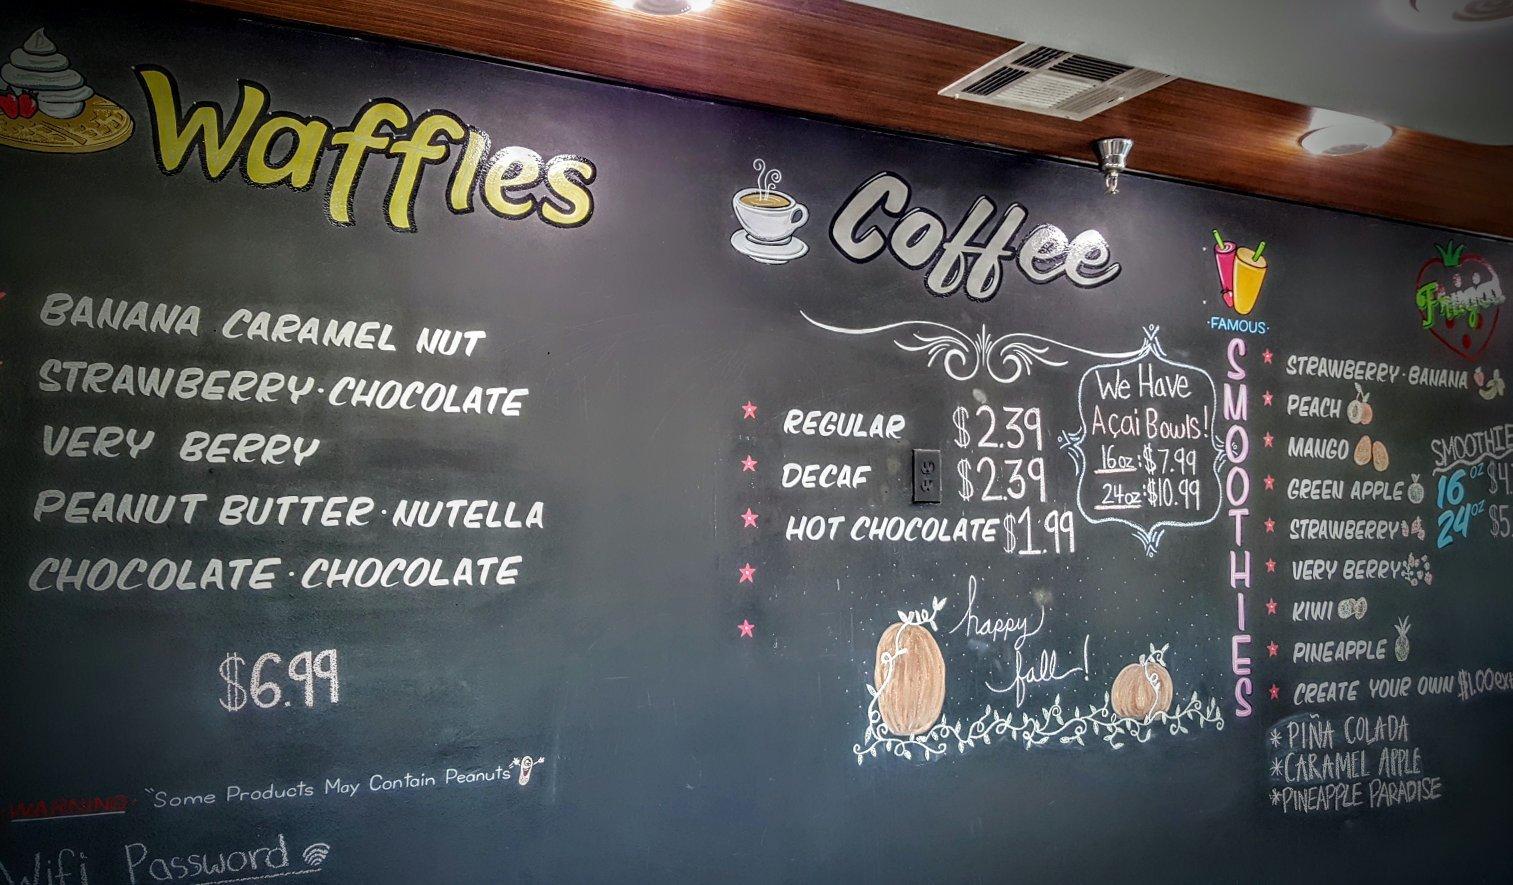 Waffles
BANANA CARAMEL NUT
STRAWBERRY·CHOCOLATE
VERY BERRY
PEANUT BUTTER·NUTELLA
CHOCOLATE·CHOCOLATE
$6.99
WARNING "Some Products May Contain Peanuts"
Wifi Password
Coffee
REGULAR $2.39
DECAF $2.39
HOT CHOCOLATE $1.99
We Have
Açai Bowls!
16oz:$7.99
24oz:$10.99
happy
fall!
·FAMOUS·
SMOOTHIES
STRAWBERRY·BANANA
PEACH
MANGO
GREEN APPLE
STRAWBERRY
VERY BERRY
KIWI
PINEAPPLE
CREATE YOUR OWN $1.00
*PIÑA COLADA
*CARAMEL APPLE
*PINEAPPLE PARADISE
SMOOTHIE
16oz
24oz